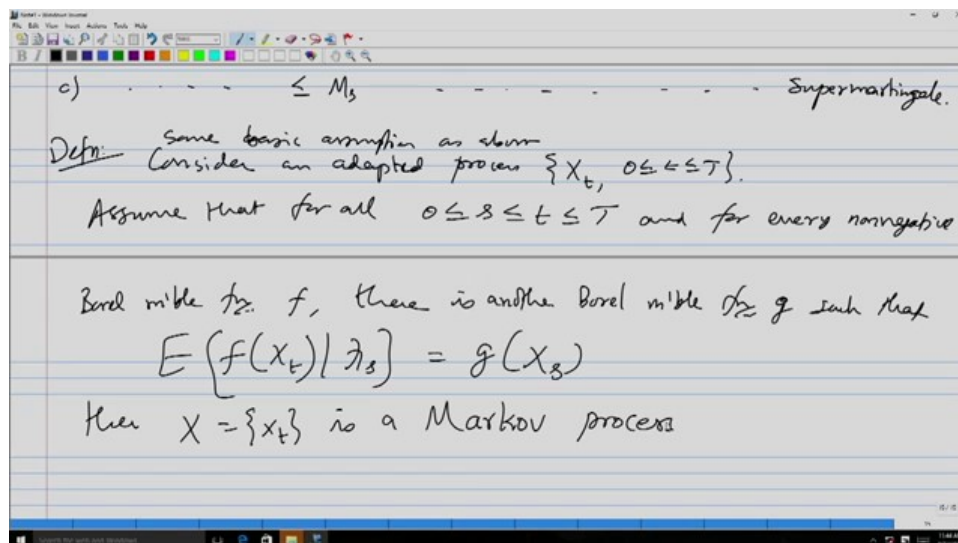 Note1 - Windows Journal
File Edit View Insert Actions Tools Help
B I
c) . . . . ≤ M_s - - - - . - - - Supermartingale.
Defn: Same basic assumption as above
Consider an adapted process {X_t, 0≤t≤T}.
Assume that for all 0≤s≤t≤T and for every nonnegative
Borel m'ble fn. f, there is another Borel m'ble fn g such that
E[f(X_t)|ℱ_s] = g(X_s)
then X = {X_t} is a Markov process
Search the web and Windows